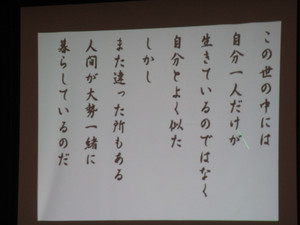 この世の中には
自分一人だけが
生きているのではなく
自分とよく似た
しかし
また違った所もある
人間が大勢一緒に
暮らしているのだ